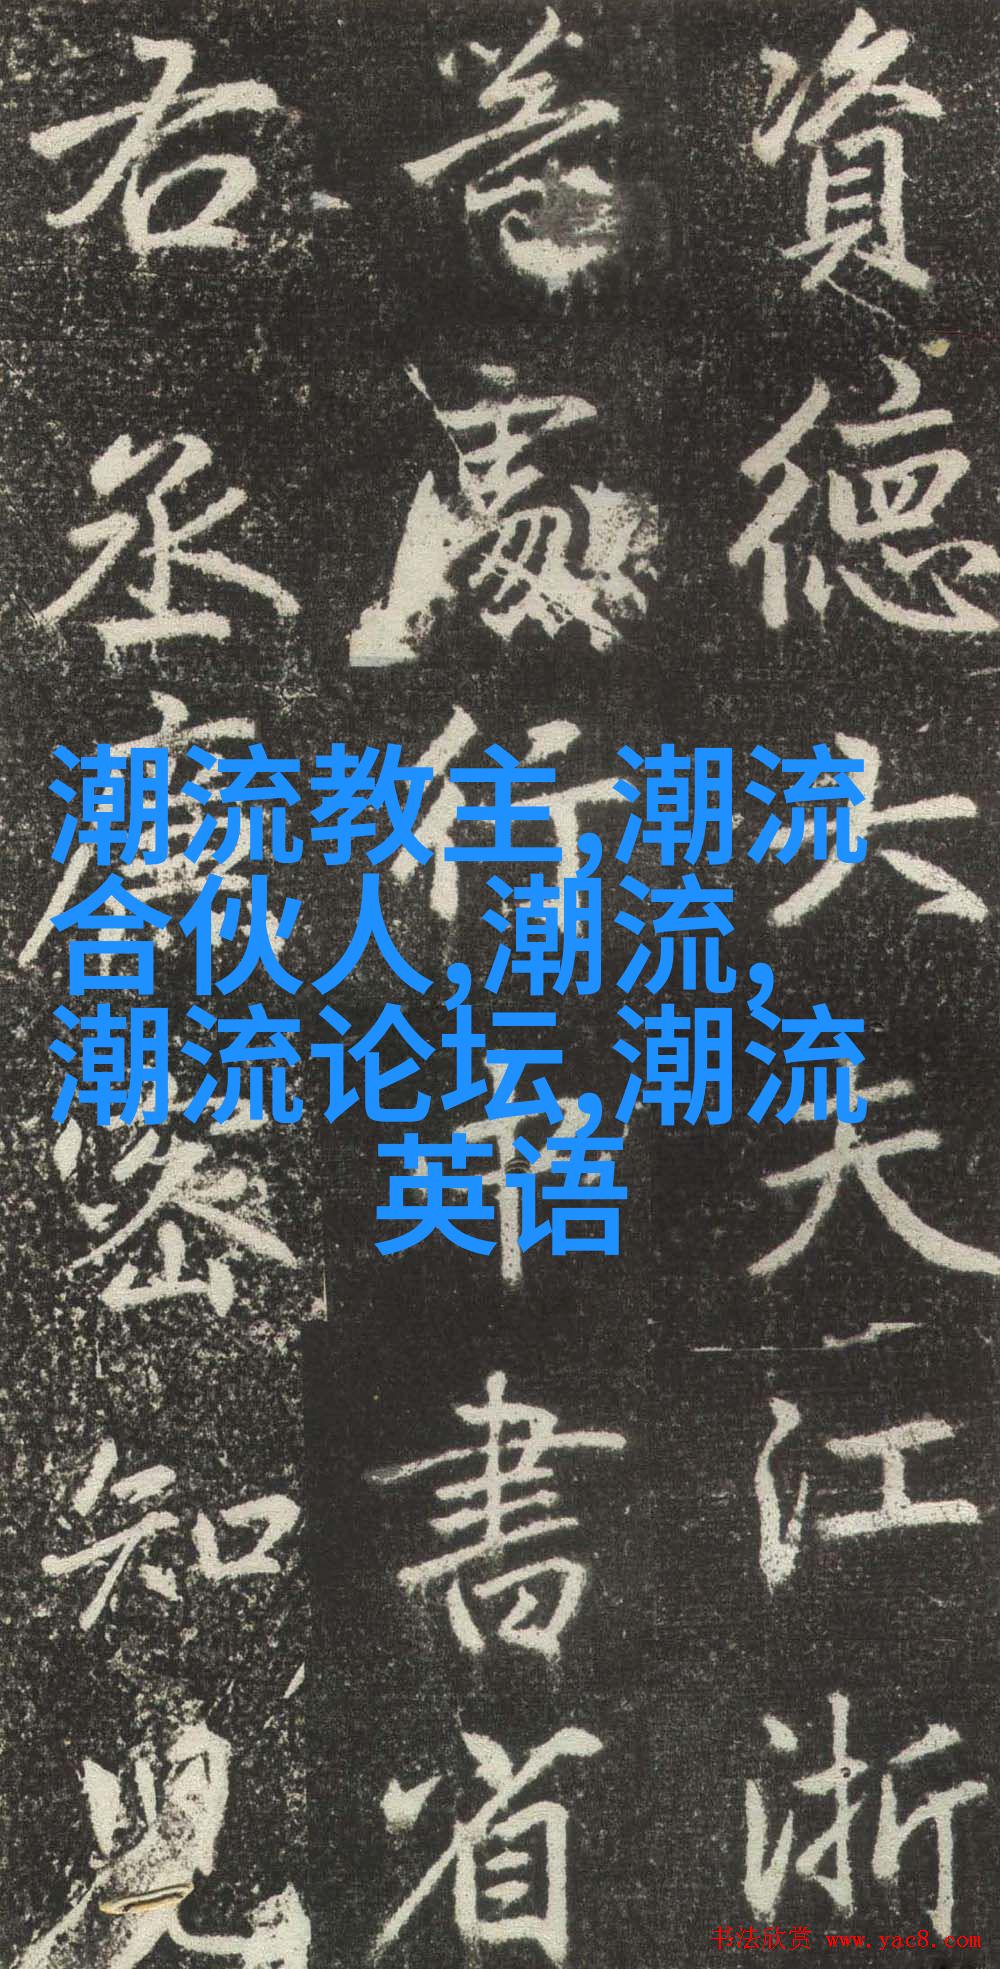 潮流教主,潮流
合伙人,潮流,
潮流论坛,潮流
英语
資德大夫江浙
等處行中書省
右丞廉密知兒
书法欣赏 www.yac8.com